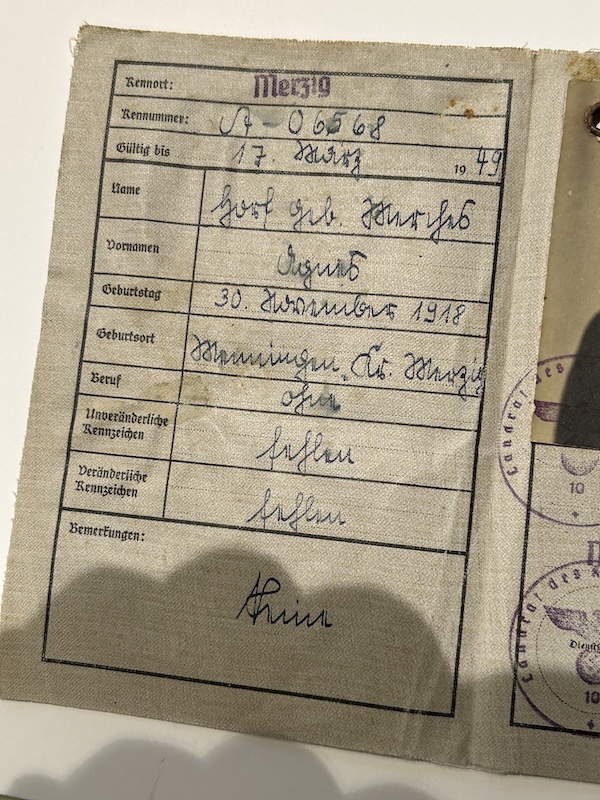 Kennort: Merzig
Kennummer: A - 06568
Gültig bis 17. März 1949
Name geb. Merches
Vornamen Agnes
Geburtstag 30. November 1918
Geburtsort Menningen, Kr. Merzig
Beruf ohne
Unveränderliche Kennzeichen fehlen
Veränderliche Kennzeichen fehlen
Bemerkungen:
Keine
Landrat des
10
Landrat des K
Dienst
10